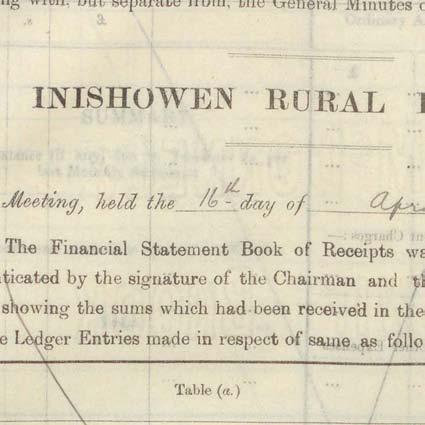 ing with, but separate from, the General Minutes o
INISHOWEN RURAL
Meeting, held the 16th day of Apr
The Financial Statement Book of Receipts wa
nticated by the signature of the Chairman and th
showing the sums which had been received in the
e Ledger Entries made in respect of same as follo
Table (a.)